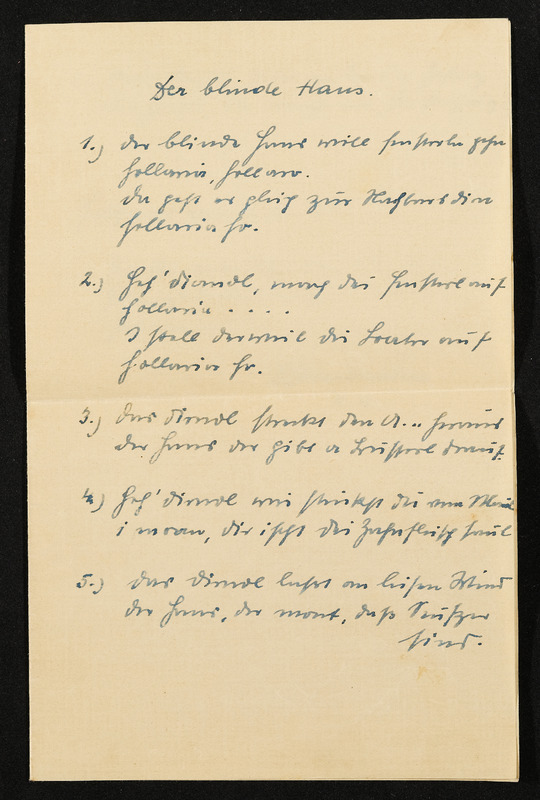 Der blinde Hans.
1.) der blinde Hans will fensterln gehn
hollaria, hollaro.
Da geht er gleich zur Nachbarsdirn
hollaria ho.
2.) Geh' diandl, mach dei Fensterl auf
hollaria . . . .
I stell derweil die Loater auf
hollaria ho.
3.) Das diandl streckt den A... heraus
der Hans der gibt a Busserl drauf.
4.) Geh' diandl wie stinkst du am Maul
i moan, dir ischt dei Zahnfleisch faul
5.) das diandl lasst an leisen Wind
der Hans, der moant, dass Seufzer
sind.